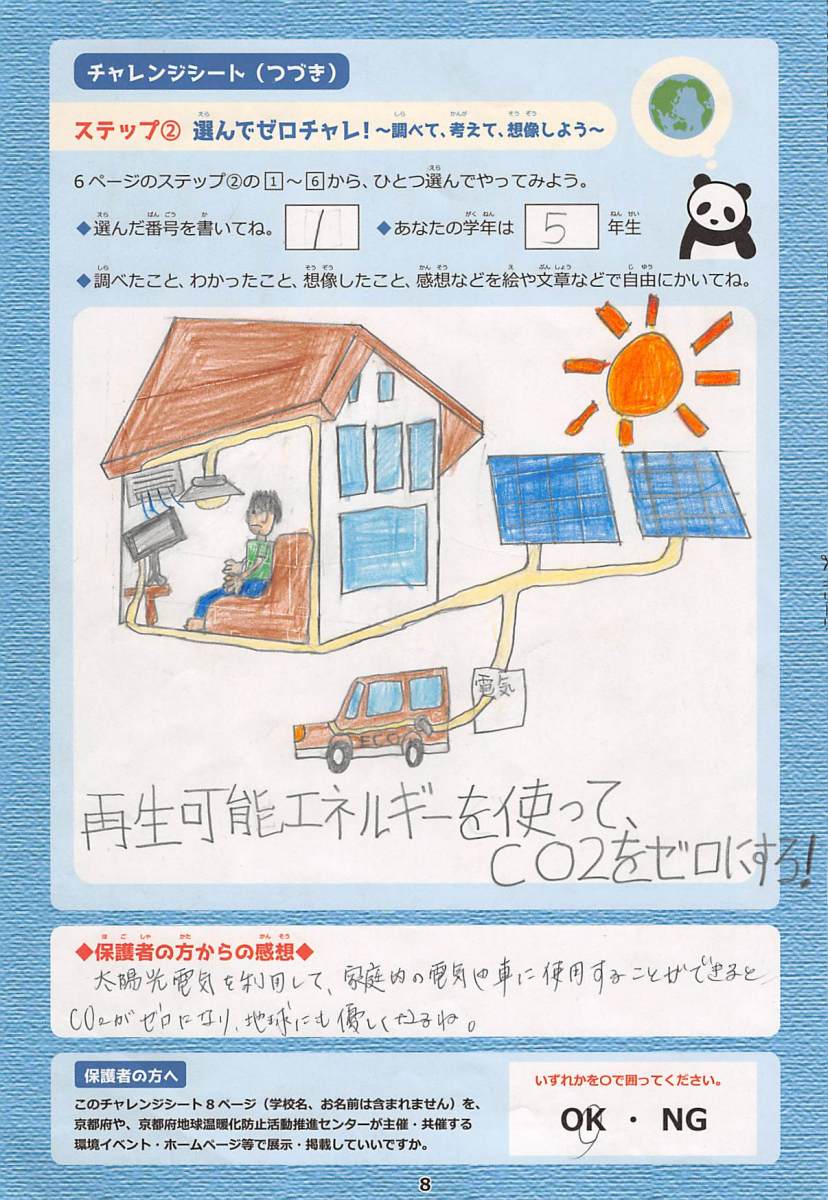 チャレンジシート（つづき）
ステップ② 選んでゼロチャレ！～調べて、考えて、想像しよう～
6ページのステップ②の1～6から、ひとつ選んでやってみよう。
◆選んだ番号を書いてね。 1 ◆あなたの学年は 5 年生
◆調べたこと、わかったこと、想像したこと、感想などを絵や文章などで自由にかいてね。
電気
ECO
再生可能エネルギーを使って、
CO2をゼロにする!
◆保護者の方からの感想◆
太陽光電気を利用して、家庭内の電気や車に使用することができると
CO2がゼロになり、地球にも優しくなるね。
保護者の方へ
このチャレンジシート8ページ（学校名、お名前は含まれません）を、
京都府や、京都府地球温暖化防止活動推進センターが主催・共催する
環境イベント・ホームページ等で展示・掲載していいですか。
いずれかを○で囲ってください。
OK ・ NG
8